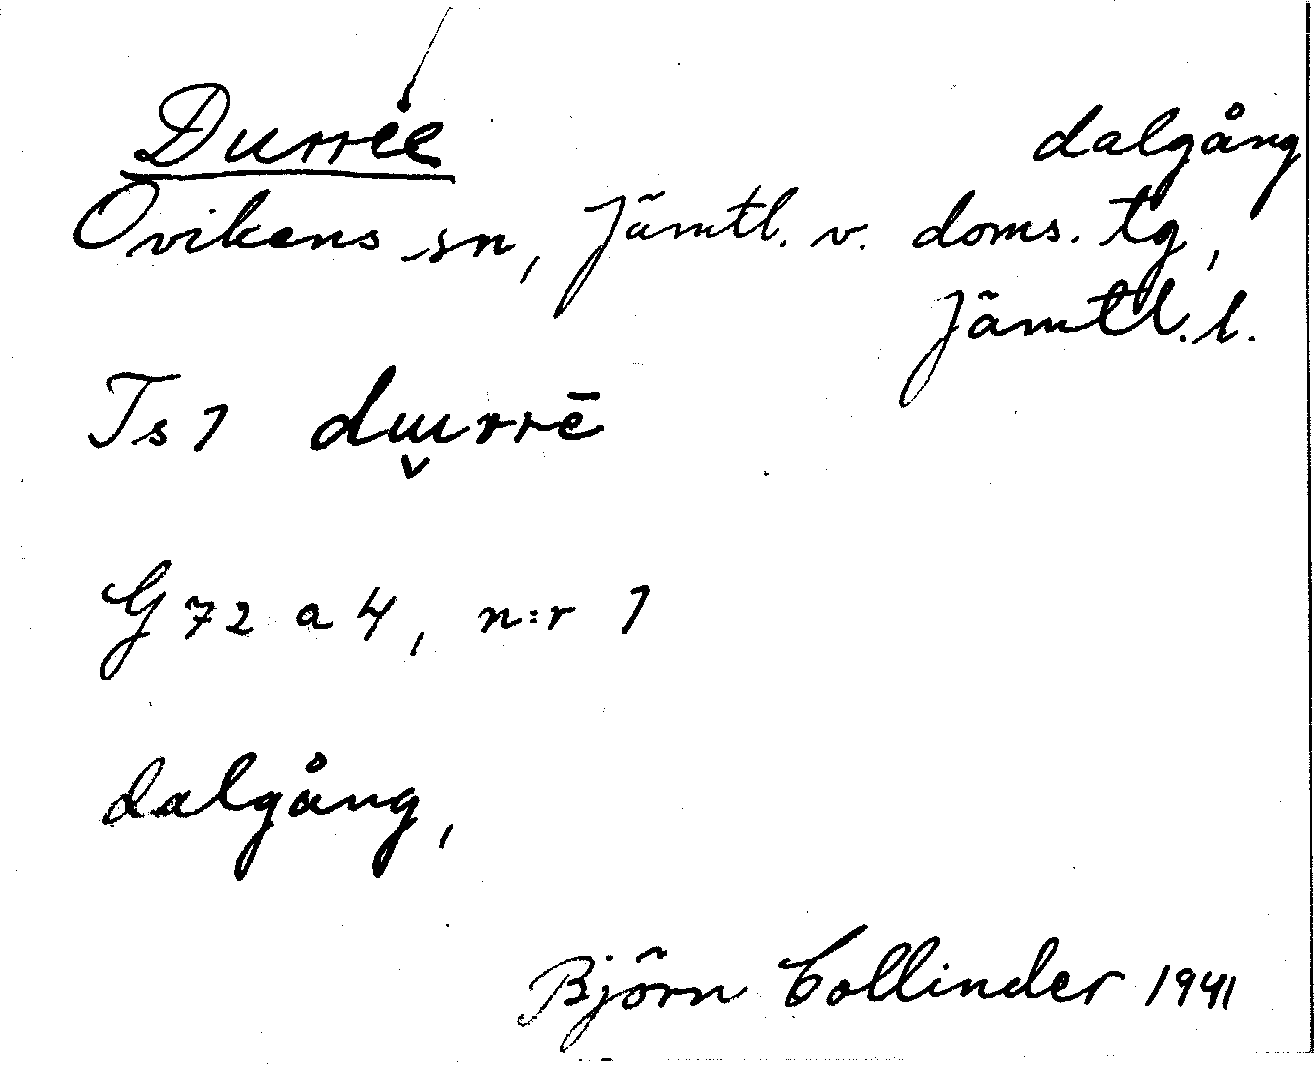 Durrēe dalgång
Ovikens sn, Jämtl. v. doms. tg,
Jämtl. l.
Ts 1 dɯ̬rrē
G 72 a 4, n:r 1
dalgång,
Björn Collinder 1941